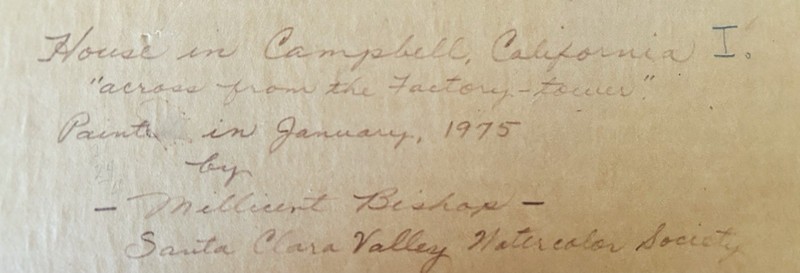 House in Campbell, California I.
"across from the Factory-tower"
Painted in January, 1975
by
- Millicent Bishop -
Santa Clara Valley Watercolor Society